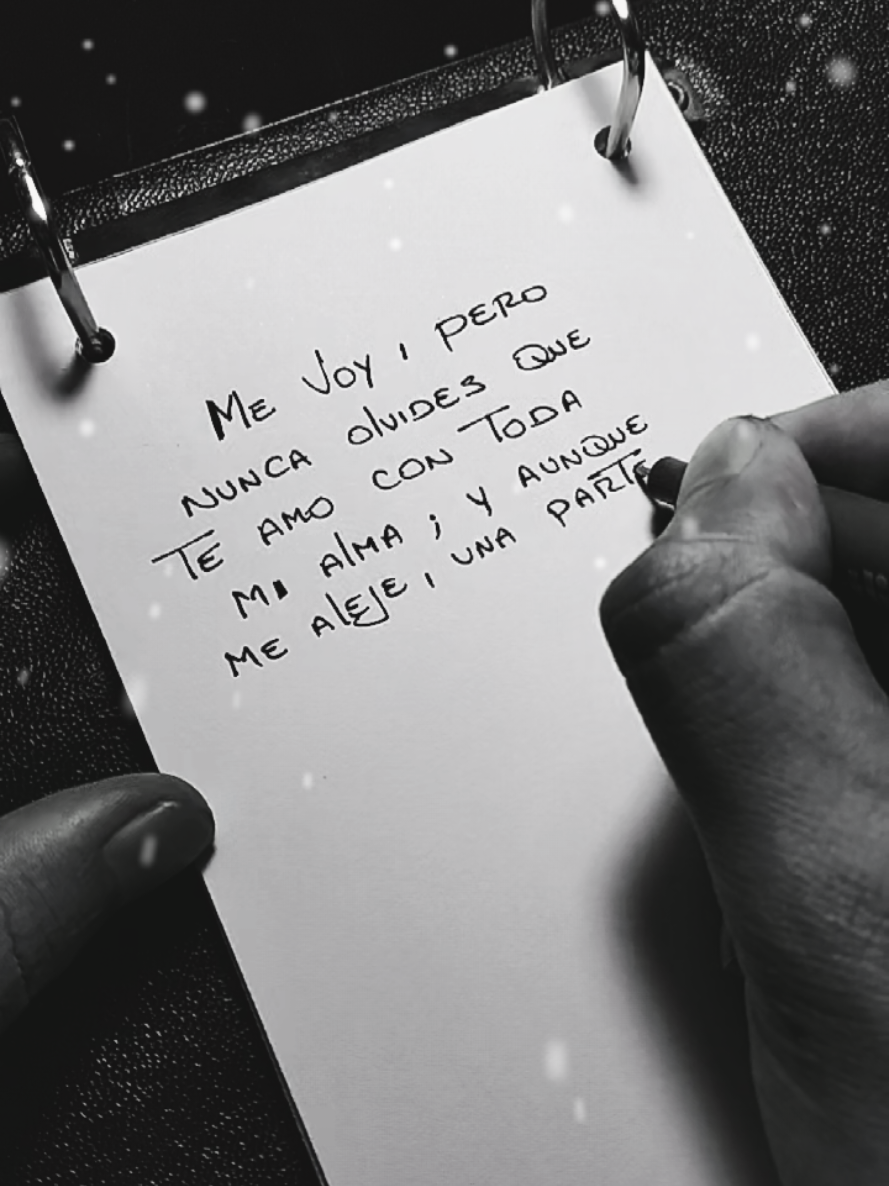 ME VOY, PERO
NUNCA OLVIDES QUE
TE AMO CON TODA
MI ALMA; Y AUNQUE
ME ALEJE, UNA PARTE